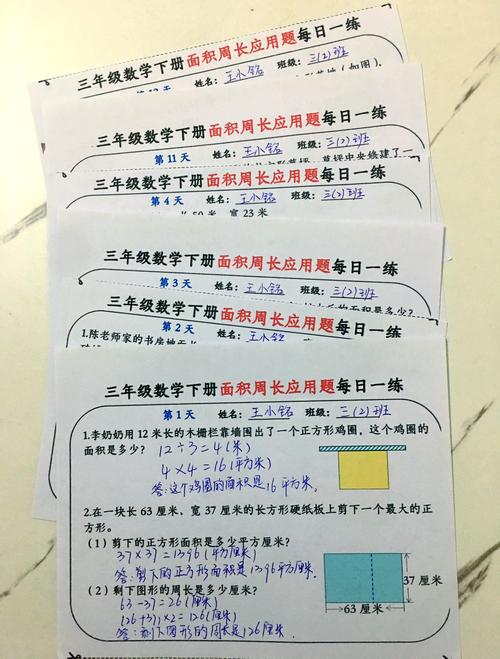 三年级数学下册面积周长应用题每日一练
姓名：王小铭 班级：三(2)班
（如图）。
三年级数学下册面积周长应用题每日一练
第 11 天 姓名：王小铭 班级：三(2)班
草坪中央修建了一
三年级数学下册面积周长应用题每日一练
第 4 天 姓名：王小铭 班级：三(2)班
宽 23 米
三年级数学下册面积周长应用题每日一练
第 3 天 姓名：王小铭 班级：三(2)班
的面积是多少？
三年级数学下册面积周长应用题每日一练
第 2 天 姓名：王小铭
1.陈老师家的书房地面长
三年级数学下册面积周长应用题每日一练
第 1 天 姓名：王小铭 班级：三(2)班
1.李奶奶用 12 米长的木栅栏靠墙围出了一个正方形鸡圈，这个鸡圈的
面积是多少？ 12÷3=4(米)
4×4=16(平方米)
答:这个鸡圈的面积是16平方米.
2.在一块长 63 厘米、宽 37 厘米的长方形硬纸板上剪下一个最大的正
方形。
（1）剪下的正方形面积是多少平方厘米？
37×37=1396(平方厘米)
答:剪下的正方形面积是1396平方厘米.
（2）剩下图形的周长是多少厘米？
63-37=26(厘米)
(26+37)×2=126(厘米)
答:剩下图形的周长是126厘米.
37 厘米
63 厘米